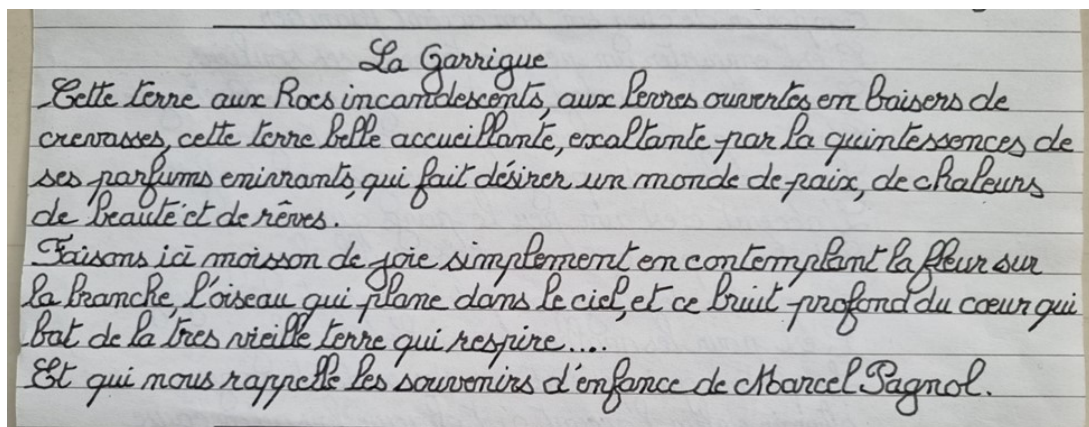 La Garrigue
Cette terre aux Rocs incandescents, aux lèvres ouvertes en baisers de
crevasses, cette terre belle accueillante, exaltante par la quintessences de
ses parfums enivrants, qui fait désirer un monde de paix, de chaleurs
de beauté et de rêves.
Faisons ici moisson de joie simplement en contemplant la fleur sur
la branche, l'oiseau qui plane dans le ciel, et ce bruit profond du coeur qui
bat de la tres vieille terre qui respire....
Et qui nous rappelle les souvenirs d'enfance de Marcel Pagnol.